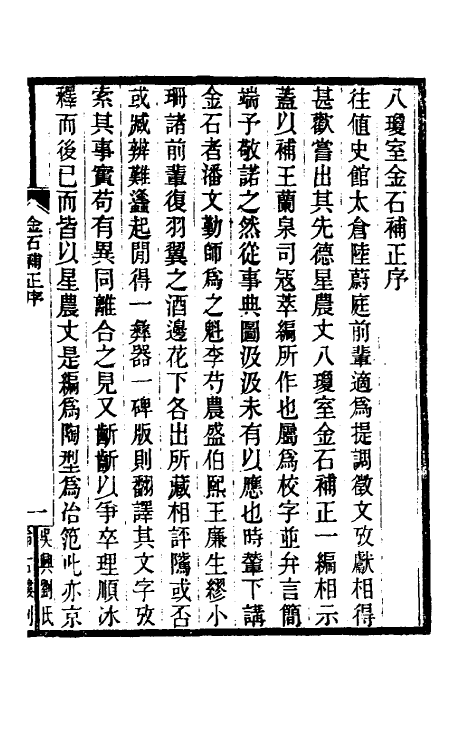 八瓊室金石補正序
往値史館太倉陸蔚庭前輩適爲提調徵文攷獻相得
甚歡嘗出其先德星農丈八瓊室金石補正一編相示
蓋以補王蘭泉司寇萃編所作也屬爲校字並弁言簡
端予敬諾之然從事典圖汲汲未有以應也時輦下講
金石者潘文勤師爲之魁李芍農盛伯熙王廉生繆小
珊諸前輩復羽翼之酒邊花下各出所藏相評隲或否
或臧辨難蠭起閒得一彝器一碑版則翻譯其文字攷
索其事實苟有異同離合之見又齗齗以爭卒理順冰
釋而後已而皆以星農丈是編爲陶型爲冶笵此亦京
金石補正序
一
吳興劉氏
希古樓刊